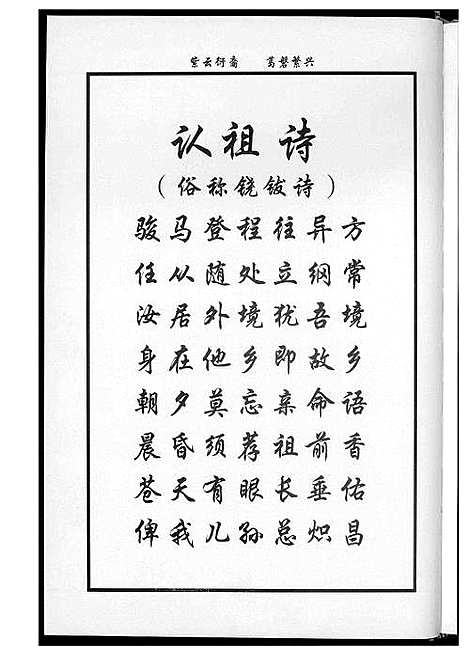 紫云衍裔 葛磐繁兴
认祖诗
（俗称铙钹诗）
骏马登程往异方
任从随处立纲常
汝居外境犹吾境
身在他乡即故乡
朝夕莫忘亲命语
晨昏须荐祖前香
苍天有眼长垂佑
俾我儿孙总炽昌